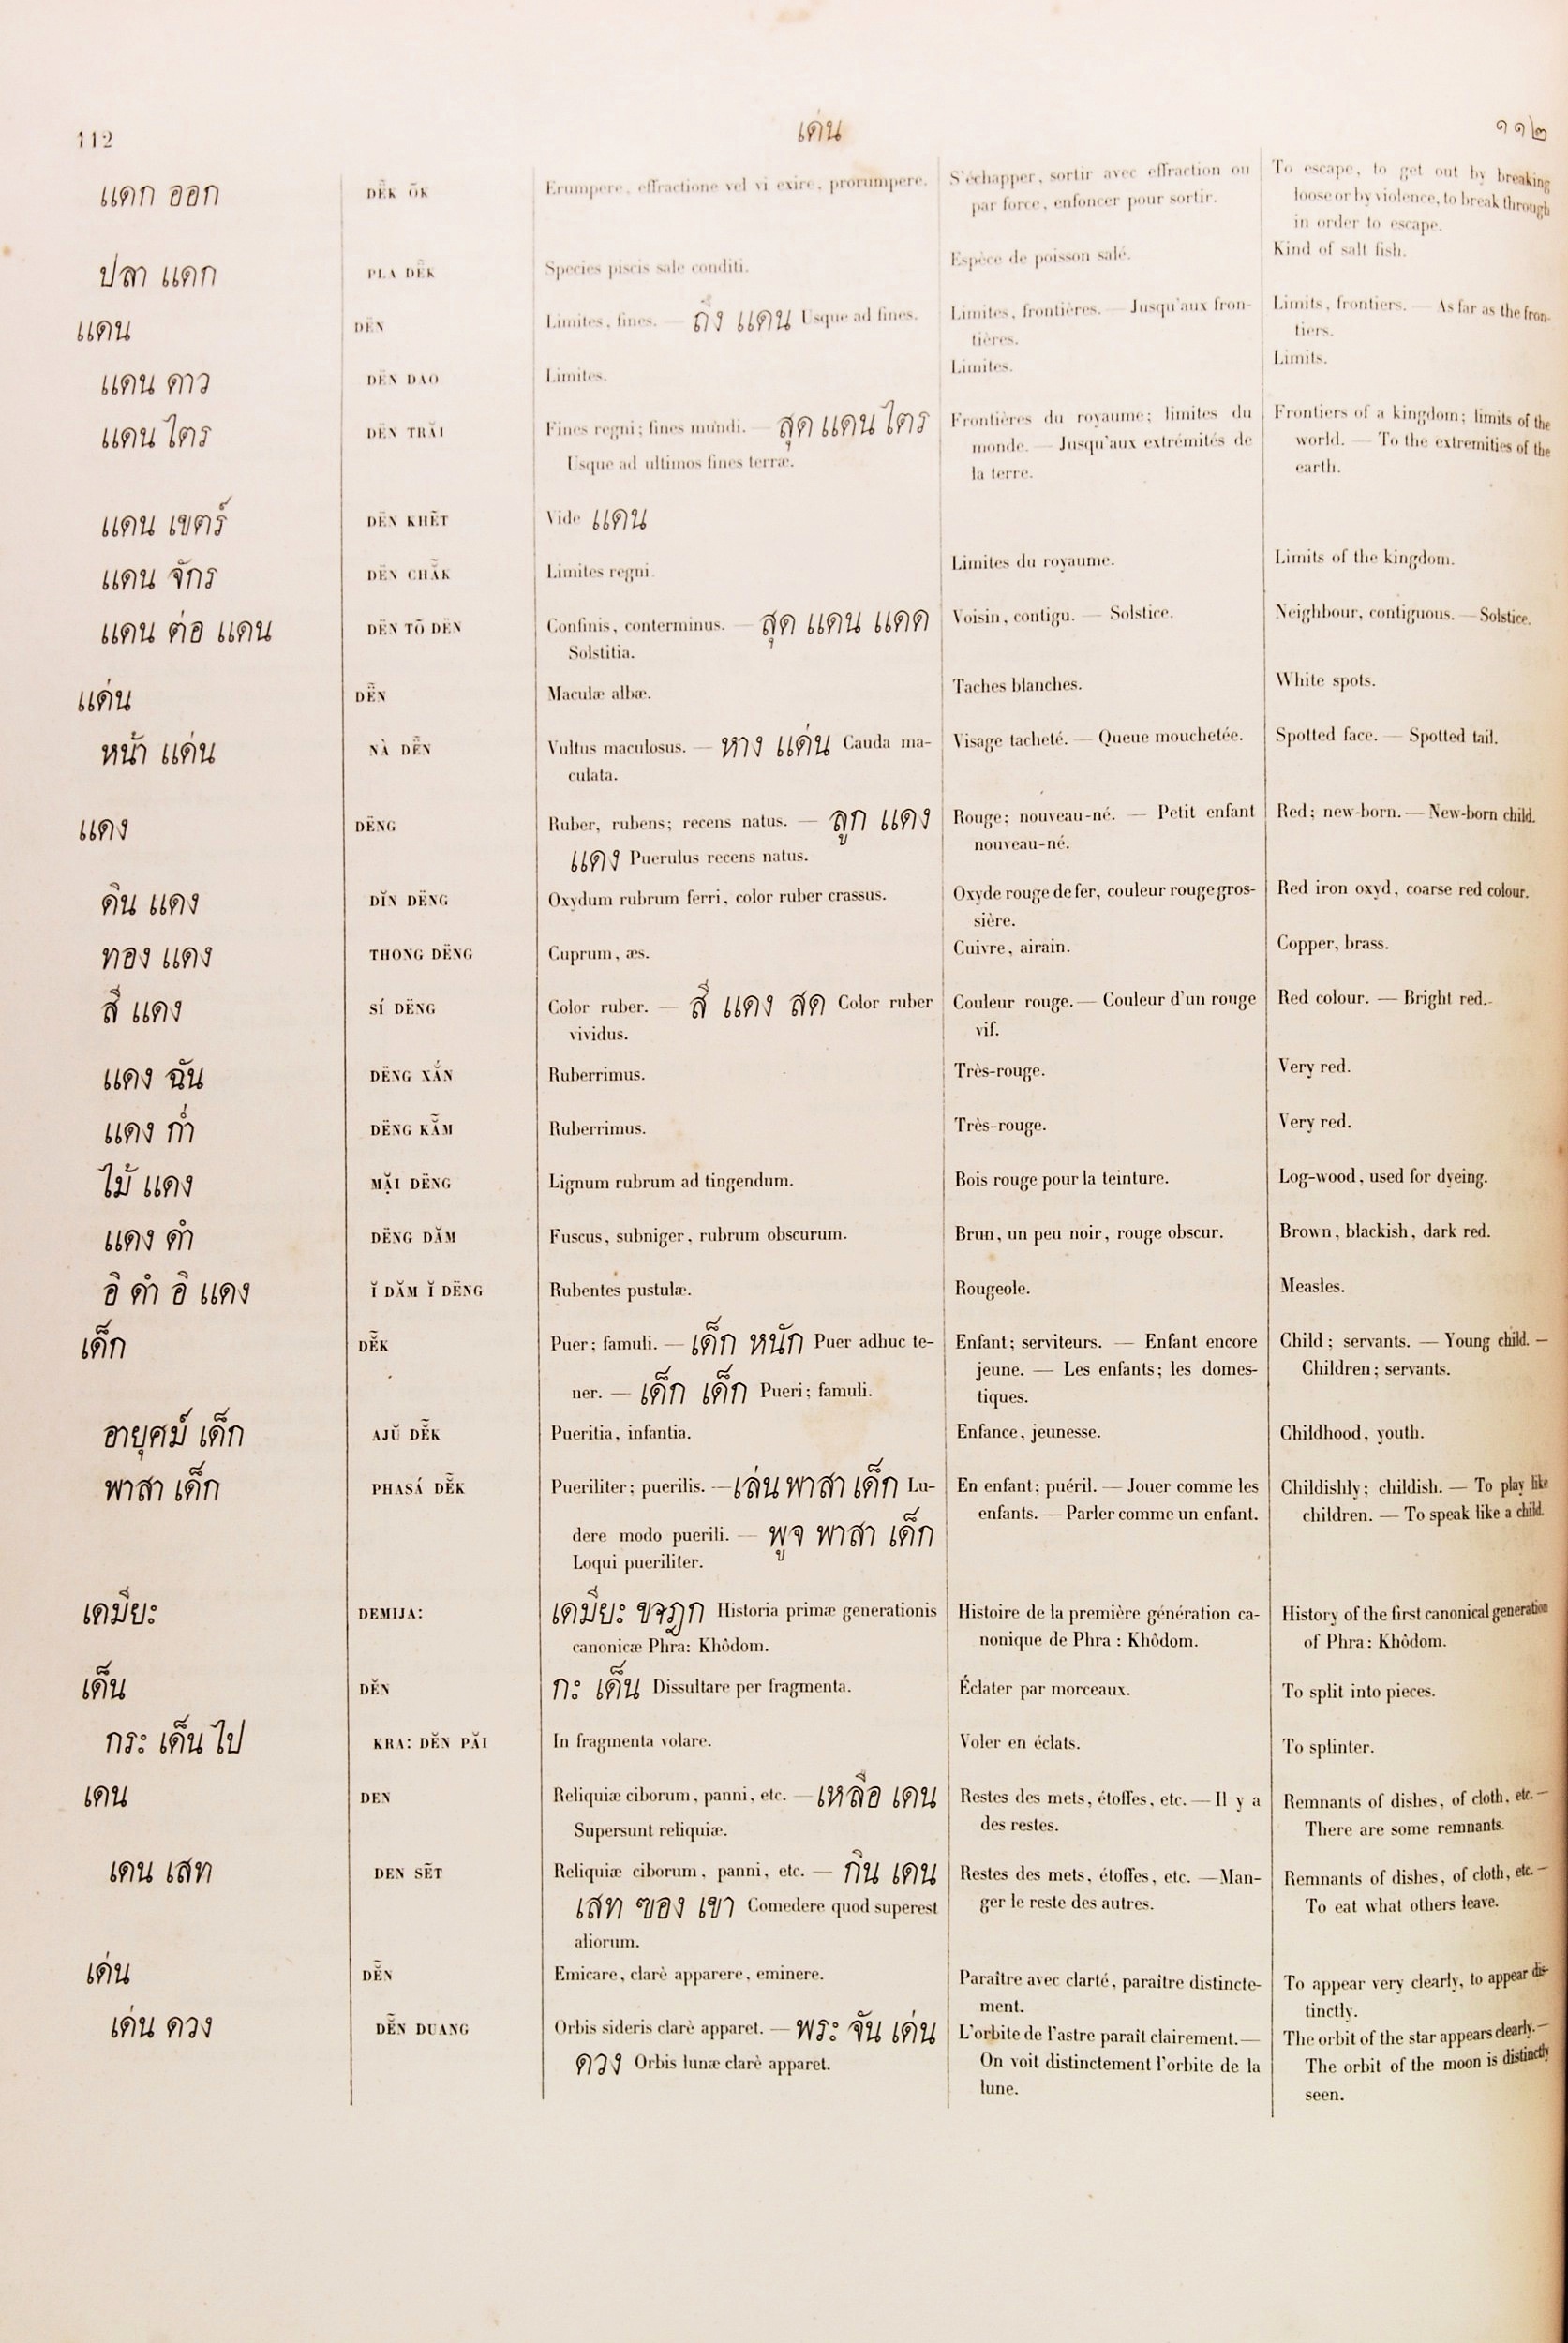 112 เด่น ๑๑๒
แดก ออก DẼK ŎK Erumpere, effractione vel vi exire, prorumpere. S'échapper, sortir avec effraction ou To escape, to get out by breaking
par force, enfoncer pour sortir. loose or by violence, to break through
in order to escape.
ปลา แดก PLA DẼK Species piscis sale conditi. Espèce de poisson salé. Kind of salt fish.
แดน DËN Limites, fines. — ถึง แดน Usque ad fines. Limites, frontières. — Jusqu'aux fron- Limits, frontiers. — As far as the fron-
tières. tiers.
แดน ดาว DËN DAO Limites. Limites. Limits.
แดน ไตร DËN TRĂI Fines regni; fines mundi. — สุด แดน ไตร Frontières du royaume; limites du Frontiers of a kingdom; limits of the
Usque ad ultimos fines terræ. monde. — Jusqu'aux extrémités de world. — To the extremities of the
la terre. earth.
แดน เขตร์ DËN KHẼT Vide แดน
แดน จักร DËN CHẮK Limites regni. Limites du royaume. Limits of the kingdom.
แดน ต่อ แดน DËN TÕ DËN Confinis, conterminus. — สุด แดน แดด Voisin, contigu. — Solstice. Neighbour, contiguous. — Solstice.
Solstitia.
แด่น DẼN Maculæ albæ. Taches blanches. White spots.
หน้า แด่น NÀ DẼN Vultus maculosus. — หาง แด่น Cauda ma- Visage tacheté. — Queue mouchetée. Spotted face. — Spotted tail.
culata.
แดง DËNG Ruber, rubens; recens natus. — ลูก แดง Rouge; nouveau-né. — Petit enfant Red; new-born. — New-born child.
แดง Puerulus recens natus. nouveau-né.
ดิน แดง DĬN DËNG Oxydum rubrum ferri, color ruber crassus. Oxyde rouge de fer, couleur rouge gros- Red iron oxyd, coarse red colour.
sière.
ทอง แดง THONG DËNG Cuprum, æs. Cuivre, airain. Copper, brass.
สี แดง SÍ DËNG Color ruber. — สี แดง สด Color ruber Couleur rouge. — Couleur d'un rouge Red colour. — Bright red.
vividus. vif.
แดง ฉัน DËNG XẮN Ruberrimus. Très-rouge. Very red.
แดง ก่ำ DËNG KẴM Ruberrimus. Très-rouge. Very red.
ไม้ แดง MẶI DËNG Lignum rubrum ad tingendum. Bois rouge pour la teinture. Log-wood, used for dyeing.
แดง ดำ DËNG DĂM Fuscus, subniger, rubrum obscurum. Brun, un peu noir, rouge obscur. Brown, blackish, dark red.
อิ ดำ อิ แดง Ĭ DĂM Ĭ DËNG Rubentes pustulæ. Rougeole. Measles.
เด็ก DẼK Puer; famuli. — เด็ก หนัก Puer adhuc te- Enfant; serviteurs. — Enfant encore Child; servants. — Young child. —
ner. — เด็ก เด็ก Pueri; famuli. jeune. — Les enfants; les domes- Children; servants.
tiques.
อายุศม์ เด็ก AJŬ DẼK Pueritia, infantia. Enfance, jeunesse. Childhood, youth.
พาสา เด็ก PHASÁ DẼK Pueriliter; puerilis. — เล่น พาสา เด็ก Lu- En enfant; puéril. — Jouer comme les Childishly; childish. — To play like
dere modo puerili. — พูจ พาสา เด็ก enfants. — Parler comme un enfant. children. — To speak like a child.
Loqui pueriliter.
เดมียะ DEMIJA: เดมียะ ขาฎก Historia primæ generationis Histoire de la première génération ca- History of the first canonical generation
canonicæ Phra: Khôdom. nonique de Phra : Khôdom. of Phra: Khôdom.
เด็น DĔN กะ เด็น Dissultare per fragmenta. Éclater par morceaux. To split into pieces.
กระ เด็น ไป KRA: DĔN PĂI In fragmenta volare. Voler en éclats. To splinter.
เดน DEN Reliquiæ ciborum, panni, etc. — เหลือ เดน Restes des mets, étoffes, etc. — Il y a Remnants of dishes, of cloth, etc. —
Supersunt reliquiæ. des restes. There are some remnants.
เดน เสท DEN SẼT Reliquiæ ciborum, panni, etc. — กิน เดน Restes des mets, étoffes, etc. — Man- Remnants of dishes, of cloth, etc. —
เสท ของ เขา Comedere quod superest ger le reste des autres. To eat what others leave.
aliorum.
เด่น DẼN Emicare, clarè apparere, eminere. Paraître avec clarté, paraître distincte- To appear very clearly, to appear dis-
ment. tinctly.
เด่น ดวง DẼN DUANG Orbis sideris clarè apparet. — พระ จัน เด่น L'orbite de l'astre paraît clairement. — The orbit of the star appears clearly. —
ดวง Orbis lunæ clarè apparet. On voit distinctement l'orbite de la The orbit of the moon is distinctly
lune. seen.